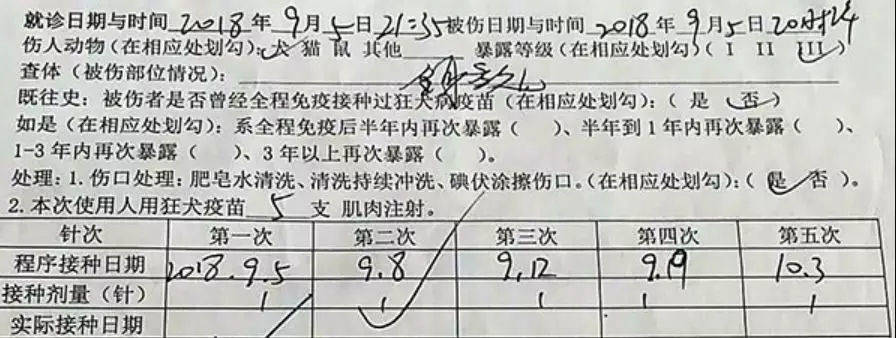 就诊日期与时间 2018 年 9 月 5 日 21:35 被伤日期与时间 2018 年 9 月 5 日 20时24
伤人动物(在相应处划勾): 犬 猫 鼠 其他 暴露等级(在相应处划勾)( I II III )
查体(被伤部位情况):
既往史: 被伤者是否曾经全程免疫接种过狂犬病疫苗(在相应处划勾):( 是 否 )
如是(在相应处划勾): 系全程免疫后半年内再次暴露( )、半年到1年内再次暴露( )、
1-3年内再次暴露( )、3年以上再次暴露( )。
处理: 1. 伤口处理: 肥皂水清洗、清洗持续冲洗、碘伏涂擦伤口。(在相应处划勾):( 是 否 )。
2. 本次使用人用狂犬疫苗 5 支 肌肉注射。
针次 第一次 第二次 第三次 第四次 第五次
程序接种日期 2018.9.5 9.8 9.12 9.19 10.3
接种剂量(针) 1 1 1 1 1
实际接种日期